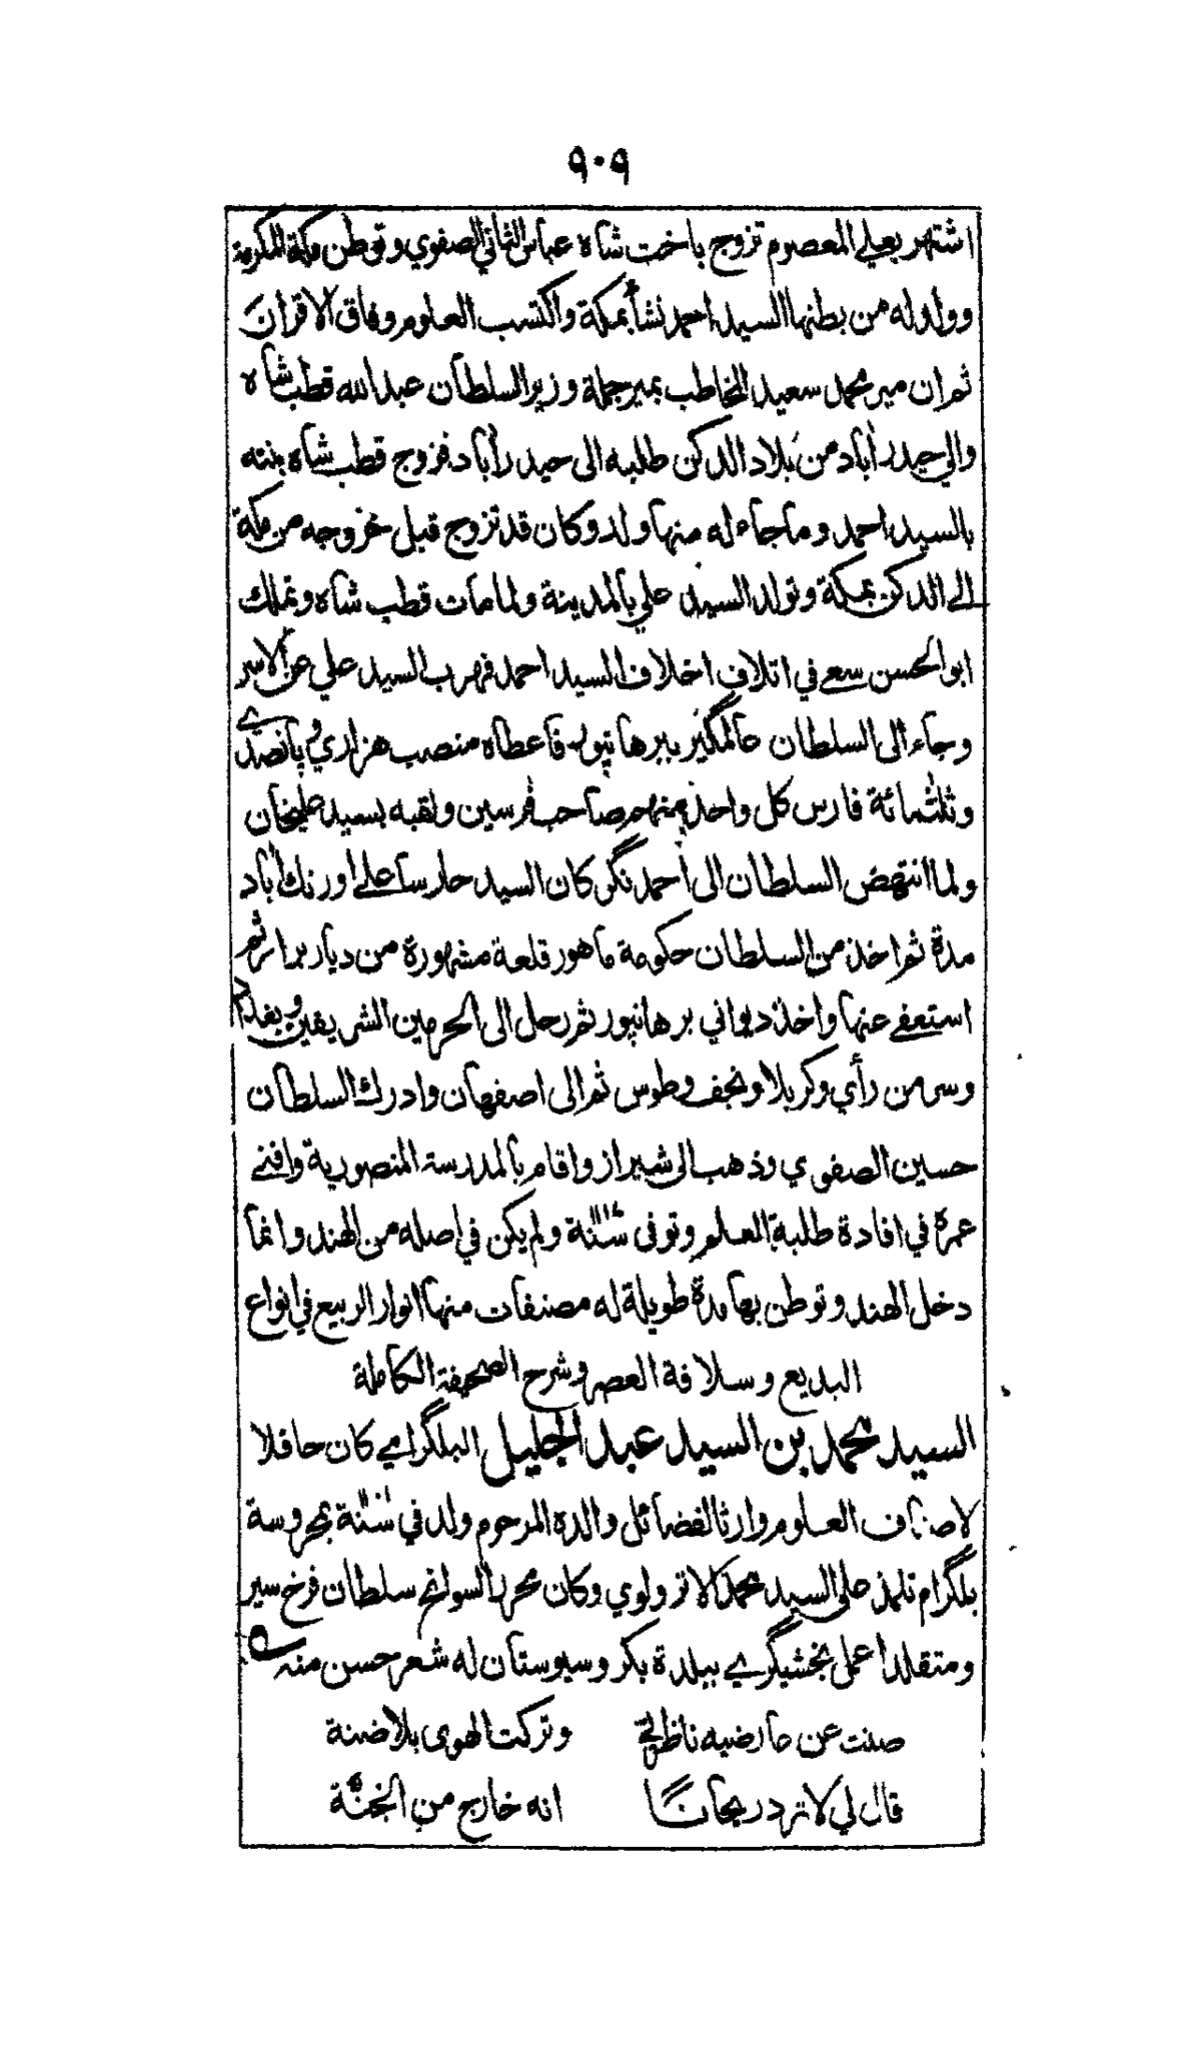 ٩٠٩
اشتهر بعلي المعصوم تزوج باخت شاه عباس الثاني الصفوي وتوطن مكة المكرمة
وولد له من بطنها السيد احمد نشأ بمكة واكتسب العلوم وفاق الاقران
ثم ان مير محمد سعيد المخاطب بمير جملة وزير السلطان عبد الله قطب شاه
والي حيدر اباد من بلاد الدكن طلبه الى حيدر اباد فزوج قطب شاه بنته
بالسيد احمد وما جاء له منها ولد وكان قد تزوج قبل خروجه من مكة
الى الدكن بمكة وتولد السيد علي بالمدينة ولما مات قطب شاه وتملك
ابو الحسن سعى في اتلاف اخلاف السيد احمد فهرب السيد علي عن الاسر
وجاء الى السلطان عالمگير ببرهانپور فاعطاه منصب هزاري و پانصدي
وثلثمائة فارس كل واحد منهم صاحب فرسين ولقبه بسيد عليخان
ولما انتهض السلطان الى احمد نگر كان السيد حارسا على اورنك اباد
مدة ثم اخذ من السلطان حكومة ماهور قلعة مشهورة من ديار برار ثم
استعفى عنها واخذ ديواني برهانپور ثم رحل الى الحرمين الشريفين وبغداد
وسر من رأي وكربلا ونجف وطوس ثم الى اصفهان وادرك السلطان
حسين الصفوي وذهب الى شيراز واقام بالمدرسة المنصورية وافنى
عمره في افادة طلبة العلم وتوفى سنة ١١١٧ ولم يكن في اصله من الهند وانما
دخل الهند وتوطن بها مدة طويلة له مصنفات منها انوار الربيع في انواع
البديع وسلافة العصر وشرح الصحيفة الكاملة
السيد محمد بن السيد عبد الجليل البلگرامي كان حافلا
لاصناف العلوم وارثا لفضائل والده المرحوم ولد في سنة بمحروسة
بلگرام تلمذ على السيد محمد الاترولوي وكان محرر السوانح سلطان فرخ سير
ومتقلدا عمل بخشيگري ببلدة بكر وسيوستان له شعر حسن منه
صنت عن عارضيه ناظرتي وتركت الهوى بلا ضنة
قال لي لا ترد ريحانا انه خارج من الجنة